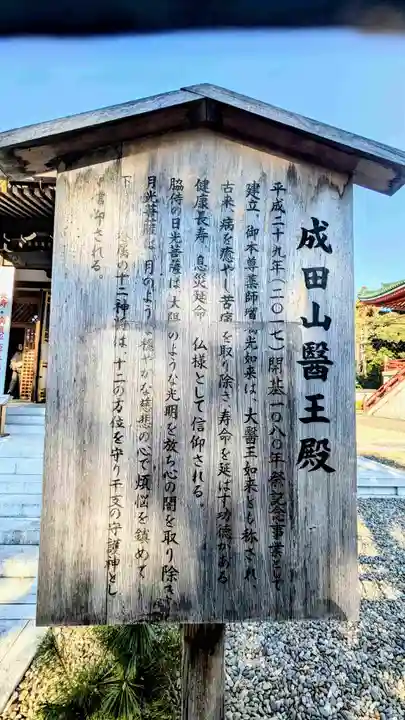 成田山醫王殿
平成二十九年(二〇一七)開基一〇八〇年祭記念事業として
建立、御本尊薬師瑠璃光如来は、大醫王如来とも称され
古来、病を癒やし苦痛を取り除き、寿命を延ばす功徳がある
健康長寿、息災延命 仏様として信仰される。
脇侍の日光菩薩は、太陽のような光明を放ち心の闇を取り除き、
月光菩薩は、月のような穏やかな慈悲の心で煩悩を鎮めて
下 の十二神将は、十二の方位を守り干支の守護神とし
信仰される。